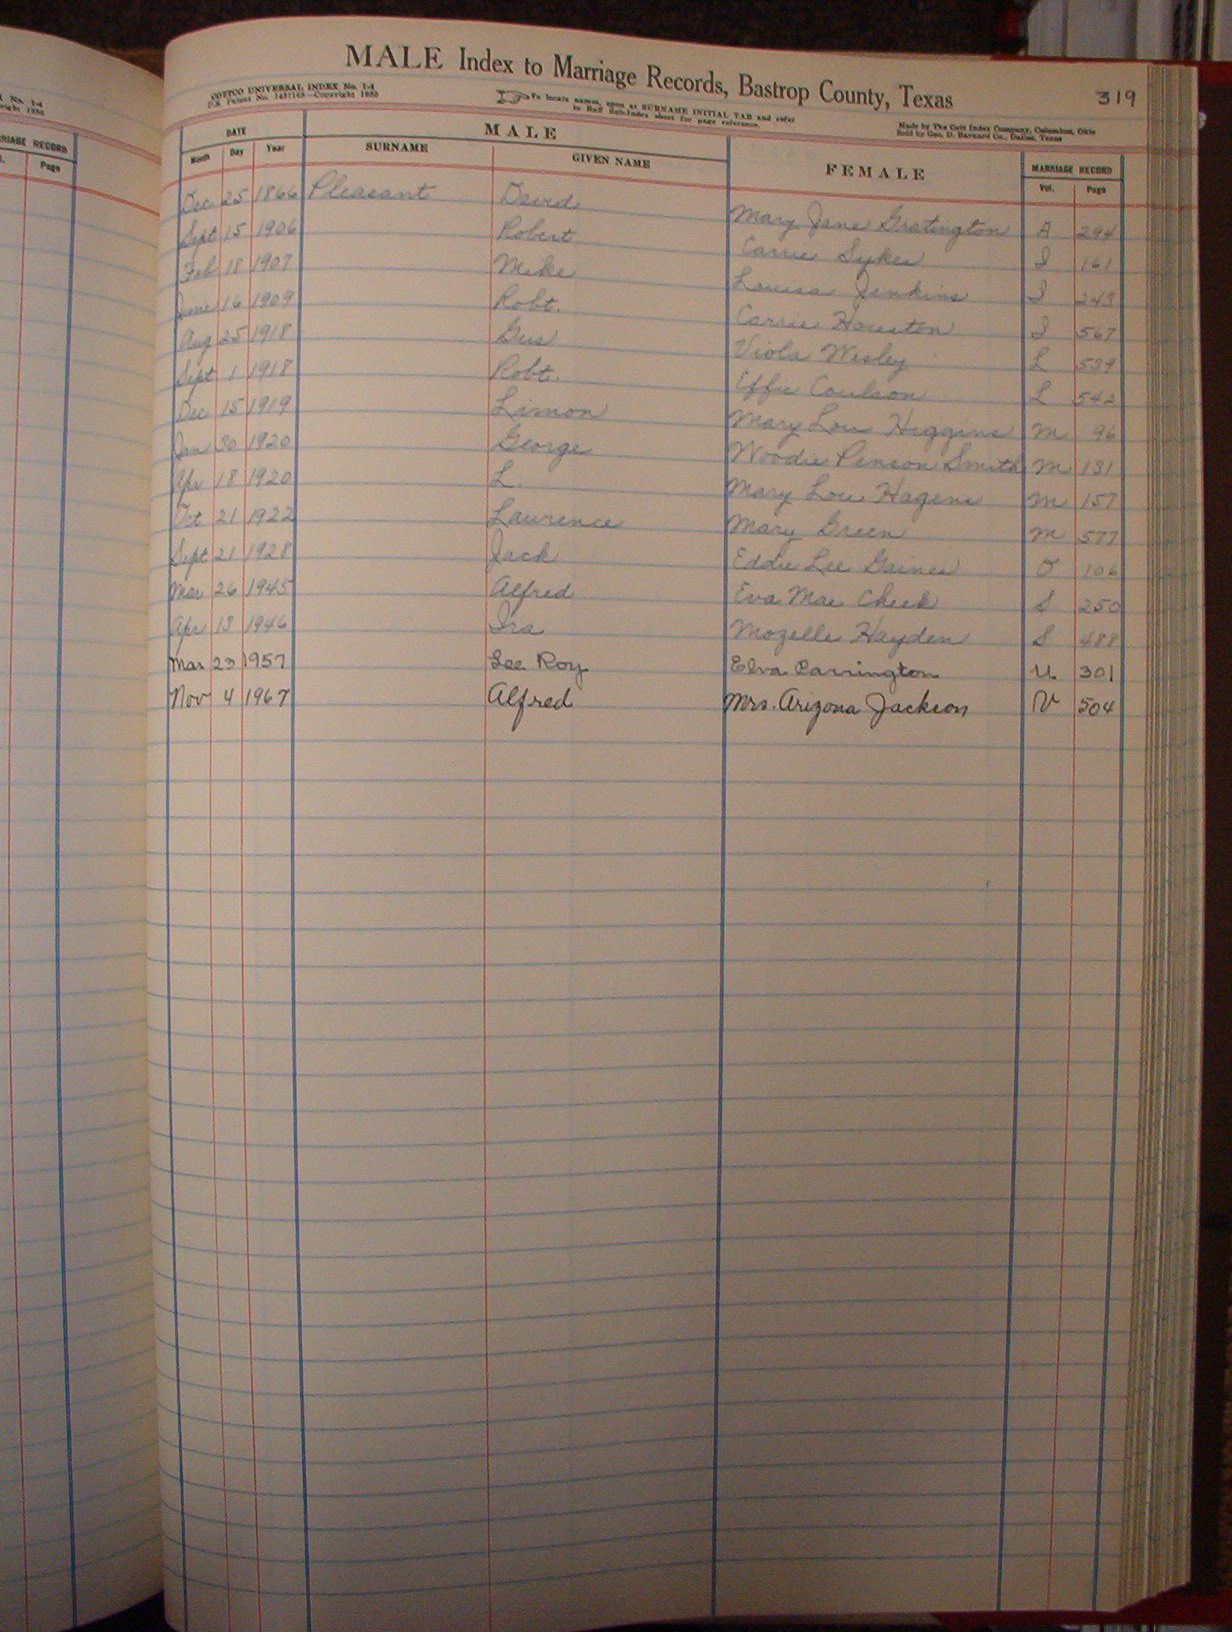 MALE Index to Marriage Records, Bastrop County, Texas
319
COTTCO UNIVERSAL INDEX No. 1-4
To locate names, open at SURNAME INITIAL TAB and refer
to Buff Sub-Index sheet for page reference.
Made by The Cott Index Company, Columbus, Ohio
Sold by Geo. D. Barnard Co., Dallas, Texas
DATE MALE FEMALE MARRIAGE RECORD
Month Day Year SURNAME GIVEN NAME Vol. Page
Dec 25 1866 Pleasant David Mary Jane Gratington A 294
Sept 15 1906 Robert Carrie Sykes I 161
Feb 18 1907 Mike Louisa Jenkins I 243
June 16 1909 Robt. Carrie Houston I 567
Aug 25 1918 Gus Viola Wesley L 539
Sept 1 1918 Robt. Effie Coulson L 542
Dec 15 1919 Limon Mary Lou Higgins M 96
Jan 30 1920 George Woodie Penson Smith M 131
Apr 18 1920 L. Mary Lou Hagens M 157
Oct 21 1922 Laurence Mary Green M 577
Sept 21 1928 Jack Eddie Lee Gaines O 106
Mar 26 1945 Alfred Eva Mae Cheek S 250
Apr 13 1946 Ira Mozelle Hayden S 488
Mar 23 1957 Lee Roy Elva Carrington U 301
Nov 4 1967 Alfred Mrs. Arizona Jackson V 504
No. 1-4
RIAGE RECORD
Page